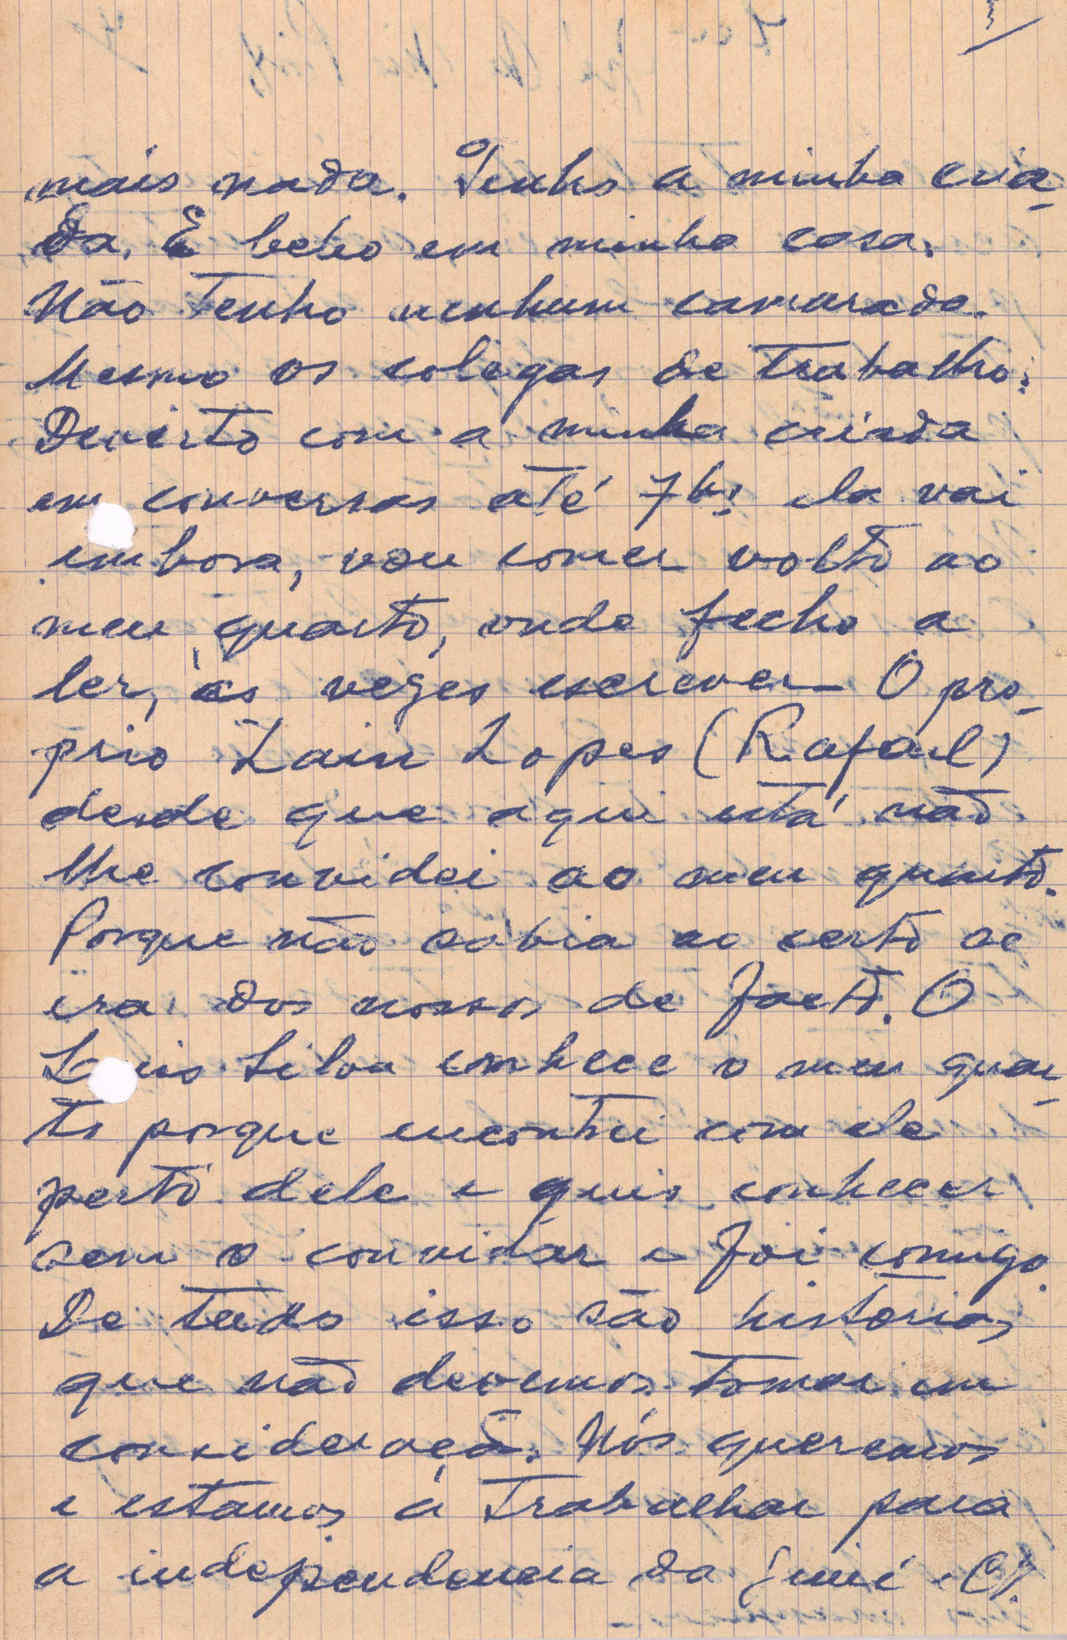 mais nada. Tenho a minha cria-
da. E bebo em minha casa.
Não Tenho nenhum camarada.
Mesmo os colegas de Trabalho:
Deverto com a minha criada
em conversas até 7h: ela vai
embora, vou comer volto ao
meu quarto, onde fecho a
ler, às vezes escrever O pro-
prio Lain Lopes (Rafael)
desde que aqui está não
lhe convidei ao meu quarto.
Porque não sabia ao certo se
era dos nossos de facto. O
Luis Silva conhece o meu quar-
to porque encontrei com ele
perto dele e quis conhecer
sem o convidar e foi comigo
De tudo isso são historias
que não devemos tomar em
consideração. Nós queremos
e estamos á Trabalhar para
a independencia da Guiné